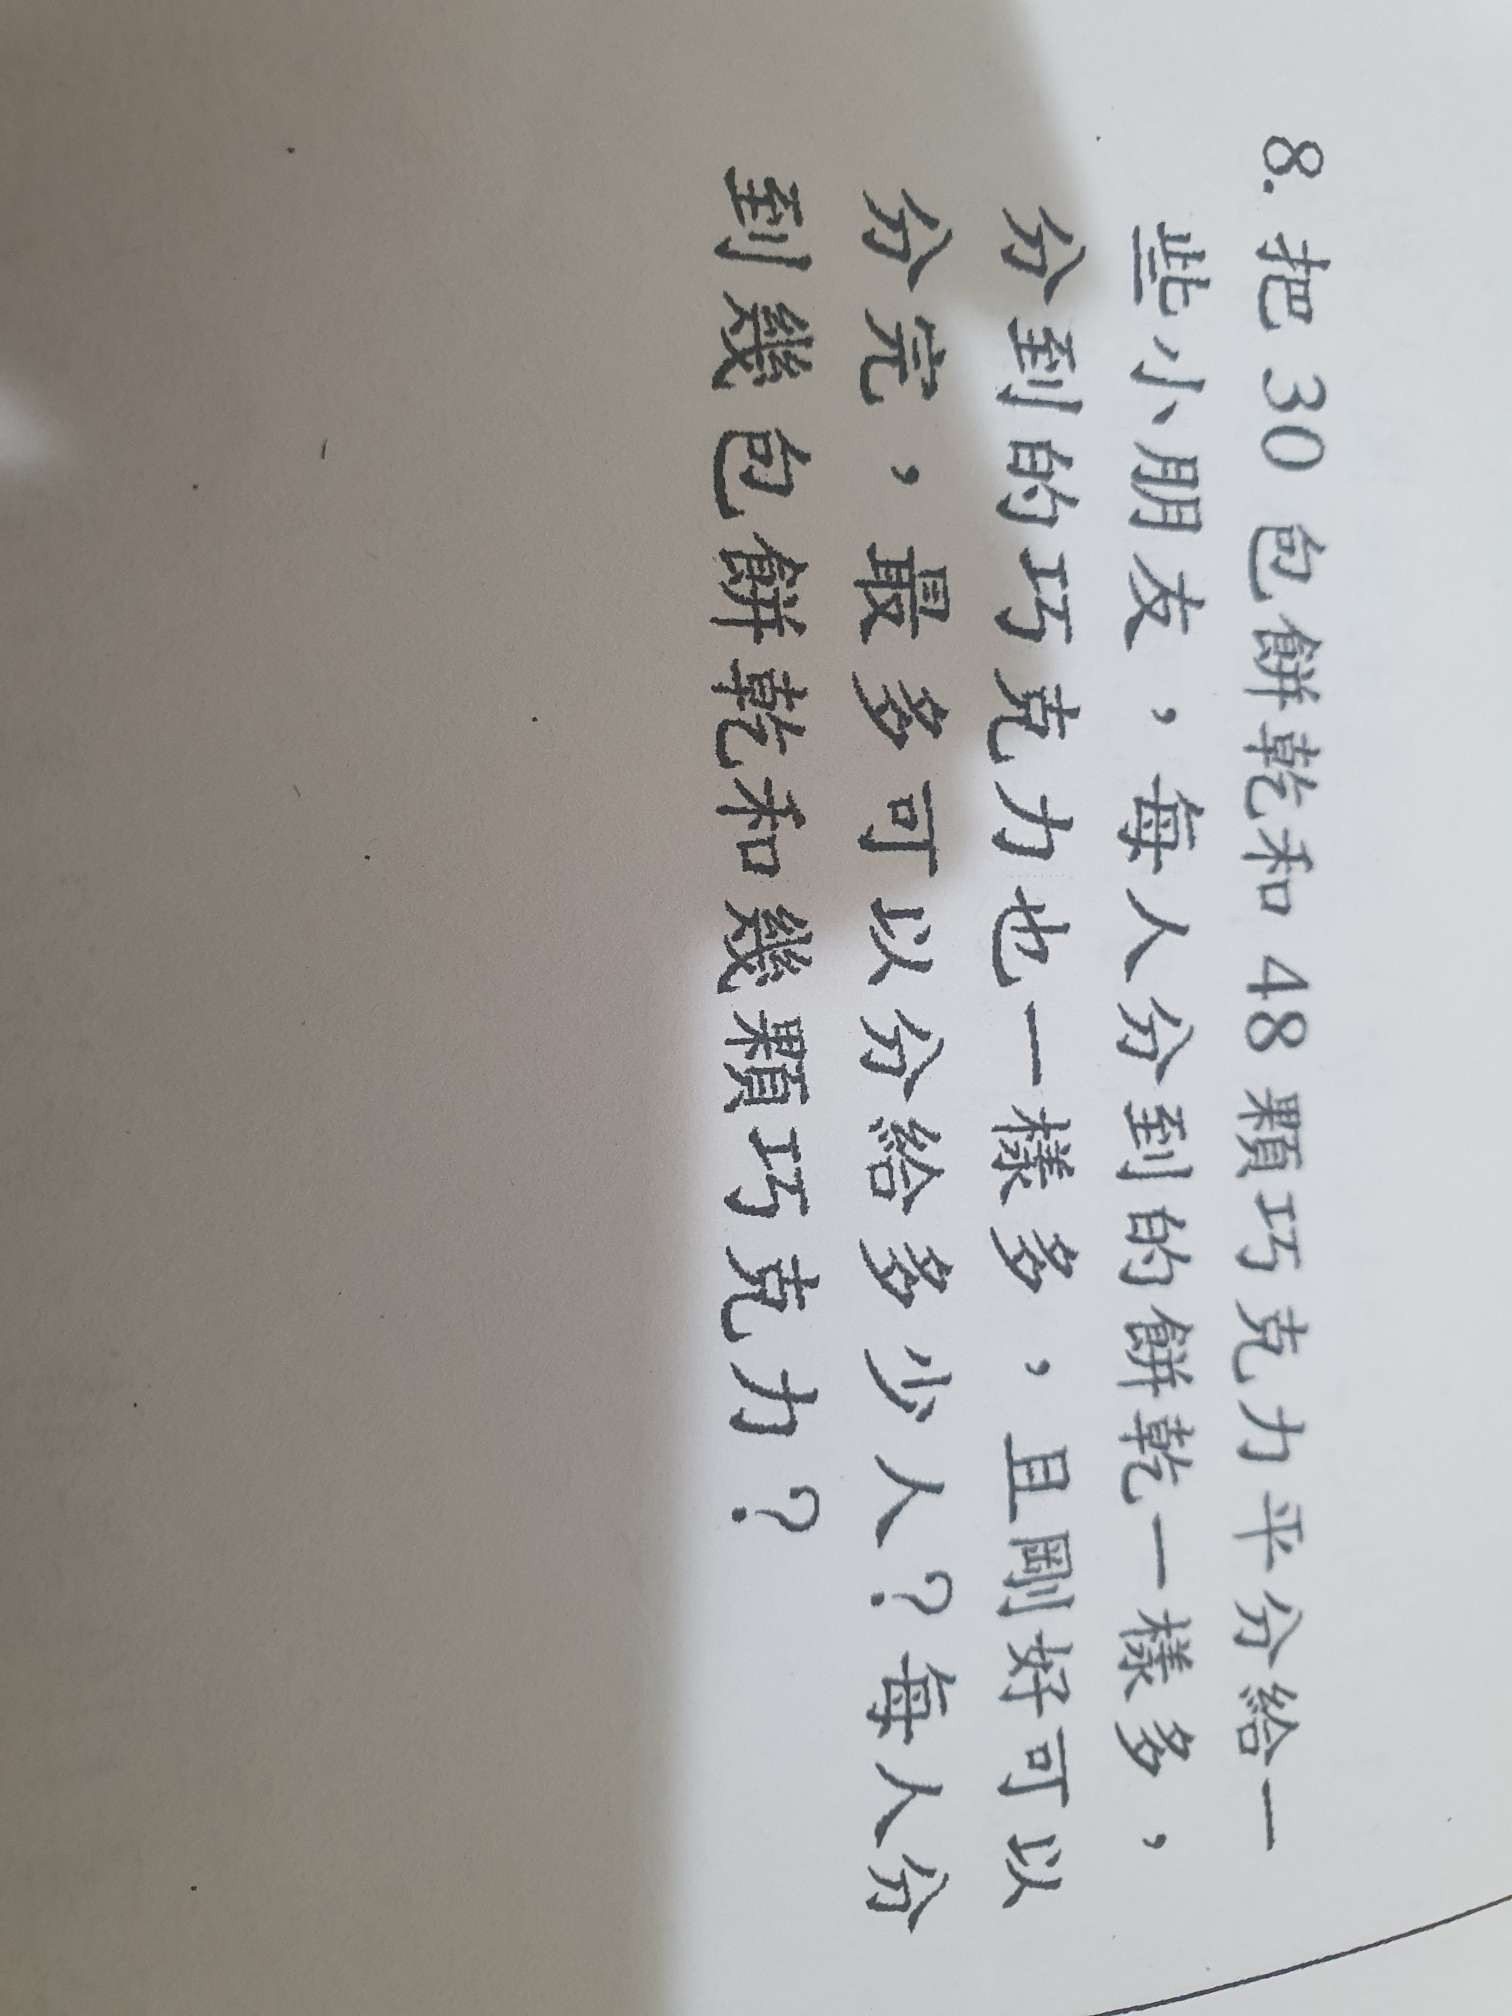 8. 把 30 包餅乾和 48 顆巧克力平分給一
些小朋友，每人分到的餅乾一樣多，
分到的巧克力也一樣多，且剛好可以
分完，最多可以分給多少人？每人分
到幾包餅乾和幾顆巧克力？